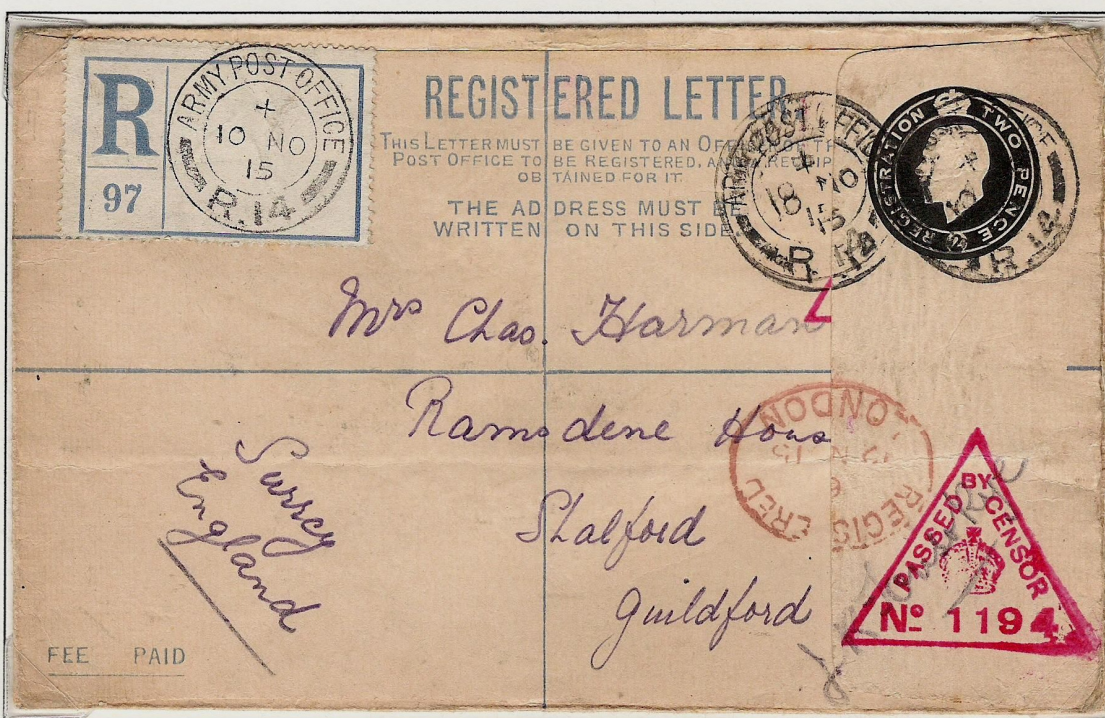 R
97
ARMY POST OFFICE
10 NO
15
R.14
REGISTERED LETTER
THIS LETTER MUST BE GIVEN TO AN OFF
POST OFFICE TO BE REGISTERED, A
OBTAINED FOR IT.
THE ADDRESS MUST B
WRITTEN ON THIS SIDE
18 NO
15
R
REGISTRATION TWO PENCE
R.14
Mrs Chas. Harman
Ramsdene Hous
Shalford
Guildford
Surrey
England
REGISTERED
LONDON
N 15
PASSED BY CENSOR
No 1194
FEE PAID